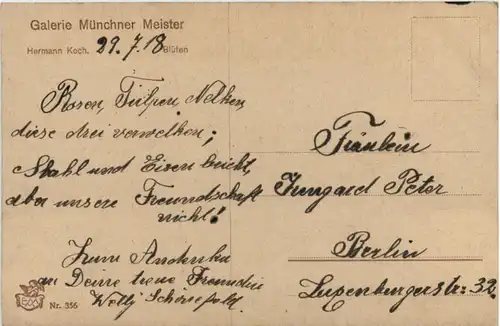 Galerie Münchner Meister
Hermann Koch. Blüten
29.7.18
Rosen, Tulpen, Nelken,
diese drei verwelken;
Stahl und Eisen bricht,
aber unsere Freundschaft
nicht!
Zum Andenken
an Deine treue Freundin
Welly
Nr. 356
Fräulein
Irmgard Peter
Berlin
Luxenburgerstr. 32